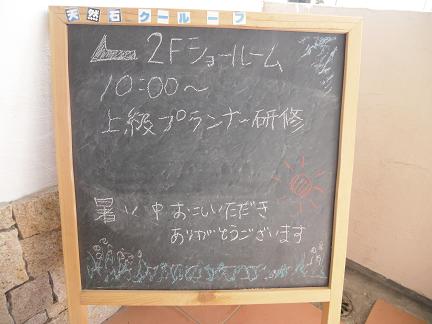 天然石クールーフ
2Fショールーム
10:00～
上級プランナー研修
暑い中おこしいただき
ありがとうございます